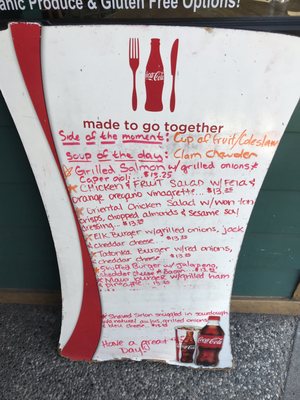 anic Produce & Gluten Free Options!
Coca-Cola
made to go together
Side of the moment: Cup of fruit/Coleslaw
Soup of the day: Clam Chowder
Grilled Salmon w/grilled onions &
Caper aoli... $13.25
Chicken & Fruit Salad w/Feta &
orange oregano vinagrette... $13.25
Oriental Chicken Salad w/won ton
crisps, chopped almonds & sesame soy
dressing... $13.25
Elk Burger w/grilled onions, Jack
& cheddar cheese $13.25
Tatonka Burger w/red onions,
cheddar cheese ... $13.25
Stuffed Burger w/Jalapeno,
cheddar cheese & Bacon $13.25
Maui burger w/grilled ham
& pineapple
Shaved Sirloin smuggled in sourdough
w/natural au jus, grilled onions
& bleu cheese.. $13.25
Have a great
Day!
Coca-Cola
Coca-Cola